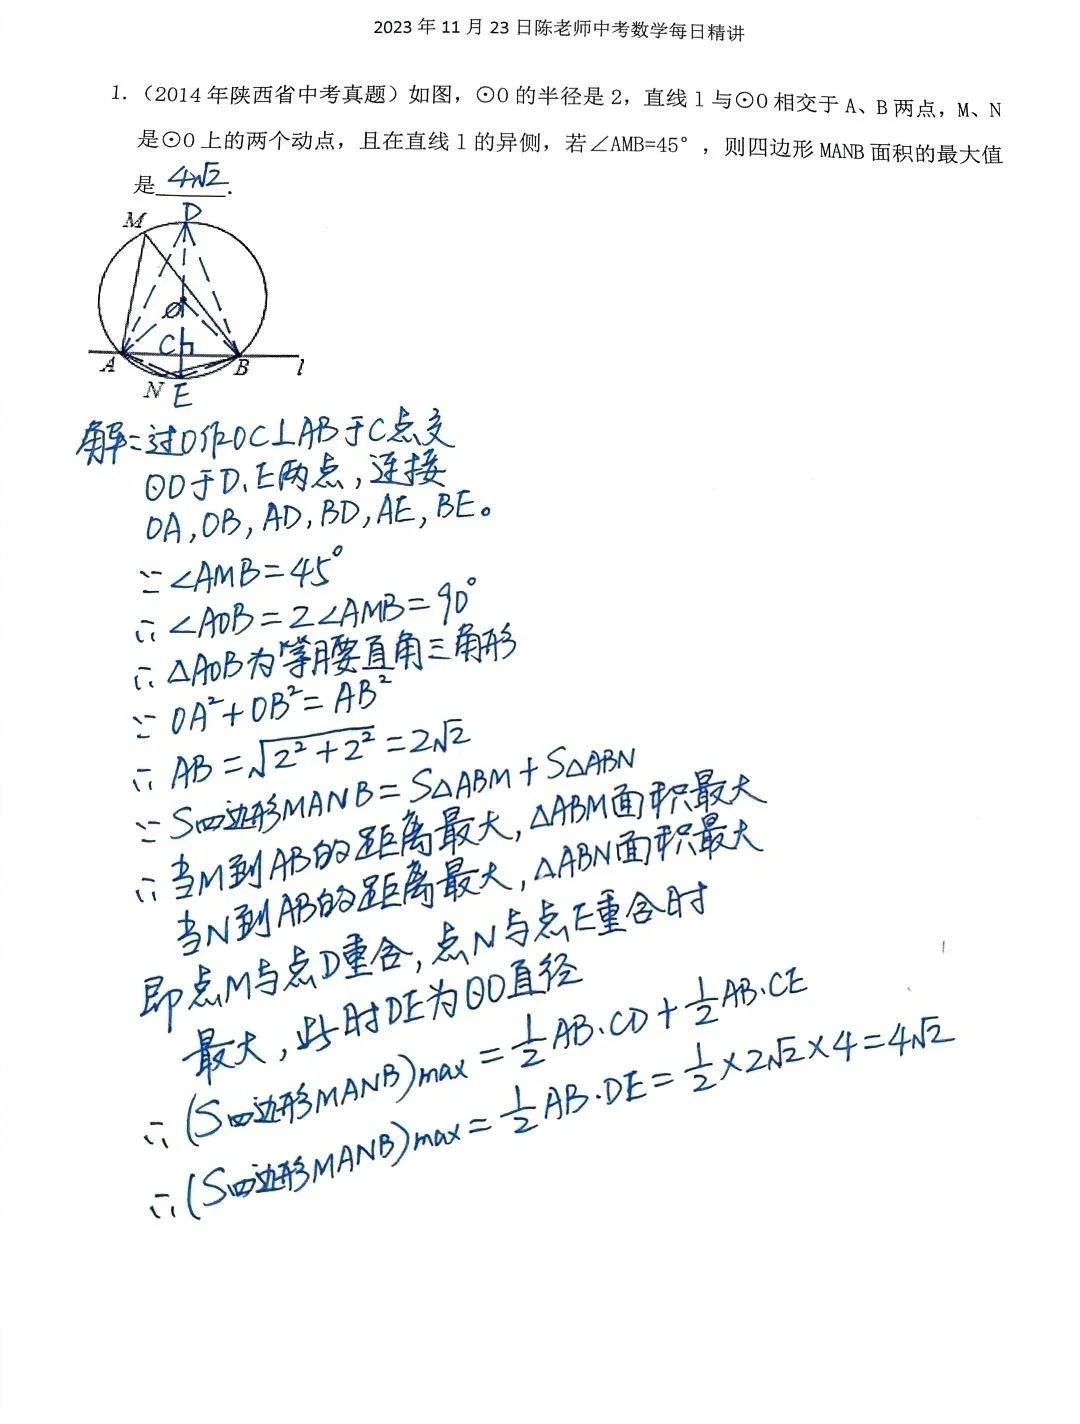 2023 年 11 月 23 日陈老师中考数学每日精讲
1. （2014 年陕西省中考真题）如图，⊙O 的半径是 2，直线 l 与⊙O 相交于 A、B 两点，M、N
是⊙O 上的两个动点，且在直线 l 的异侧，若∠AMB=45°，则四边形 MANB 面积的最大值
是 4√2 .
D
M
O
C
A
B
l
N E
解：过O作OC⊥AB于C点交
⊙O于D、E两点，连接
OA,OB,AD,BD,AE,BE。
∵∠AMB=45°
∴∠AOB=2∠AMB=90°
∴△AOB为等腰直角三角形
∵OA²+OB²=AB²
∴AB=√(2²+2²)=2√2
∵S四边形MANB=S△ABM+S△ABN
∴当M到AB的距离最大,△ABM面积最大
当N到AB的距离最大,△ABN面积最大
即点M与点D重合,点N与点E重合时
最大,此时DE为⊙O直径
∴(S四边形MANB)max=1/2AB·CD+1/2AB·CE
∴(S四边形MANB)max=1/2AB·DE=1/2×2√2×4=4√2